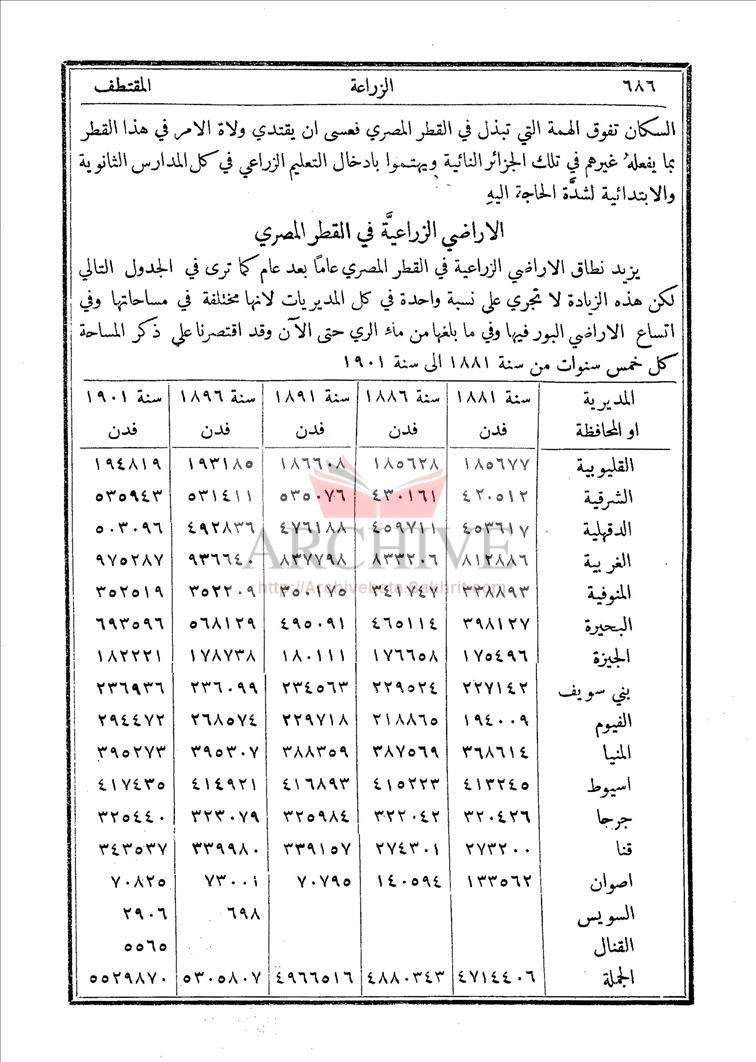 ٦٨٦ الزراعة المقتطف
السكان تفوق الهمة التي تبذل في القطر المصري فعسى ان يقتدي ولاة الامر في هذا القطر
بما يفعلهُ غيرهم في تلك الجزائر النائية ويهتموا بادخال التعليم الزراعي في كل المدارس الثانوية
والابتدائية لشدَّة الحاجة اليهِ
الاراضي الزراعيَّة في القطر المصري
يزيد نطاق الاراضي الزراعية في القطر المصري عامًا بعد عام كما ترى في الجدول التالي
لكن هذه الزيادة لا تجري على نسبة واحدة في كل المديريات لانها مختلفة في مساحاتها وفي
اتساع الاراضي البور فيها وفي ما بلغها من ماء الري حتى الآن وقد اقتصرنا على ذكر المساحة
كل خمس سنوات من سنة ١٨٨١ الى سنة ١٩٠١
المديرية سنة ١٨٨١ سنة ١٨٨٦ سنة ١٨٩١ سنة ١٨٩٦ سنة ١٩٠١
او المحافظة فدن فدن فدن فدن فدن
القليوبية ١٨٥٦٧٧ ١٨٥٦٢٨ ١٨٦٦٠٨ ١٩٣١٨٥ ١٩٤٨١٩
الشرقية ٤٢٠٥١٢ ٤٣٠١٦١ ٥٣٥٠٧٦ ٥٣١٤١١ ٥٣٥٩٤٣
الدقهلية ٤٥٣٦١٧ ٤٥٩٧١١ ٤٧٦١٨٨ ٤٩٢٨٣٦ ٥٠٣٠٩٦
الغربية ٨١٢٨٨٦ ٨٣٣٢٠٦ ٨٣٧٧٩٨ ٩٣٦٦٤٠ ٩٧٥٢٨٧
المنوفية ٣٣٨٨٩٣ ٣٤١٧٤٧ ٣٥٠١٧٥ ٣٥٢٢٠٩ ٣٥٢٥١٩
البحيرة ٣٩٨١٢٧ ٤٦٥١١٤ ٤٩٥٠٩١ ٥٦٨١٢٩ ٦٩٣٥٩٦
الجيزة ١٧٥٤٩٦ ١٧٦٦٥٨ ١٨٠١١١ ١٧٨٧٣٨ ١٨٢٢٢١
بني سويف ٢٢٧١٤٢ ٢٢٩٥٢٤ ٢٣٤٥٦٣ ٢٣٦٠٩٩ ٢٣٦٩٣٦
الفيوم ١٩٤٠٠٩ ٢١٨٨٦٥ ٢٢٩٧١٨ ٢٦٨٥٧٤ ٢٩٤٤٧٢
المنيا ٣٦٨٦١٤ ٣٨٧٥٦٩ ٣٨٨٣٥٩ ٣٩٥٣٠٧ ٣٩٥٢٧٣
اسيوط ٤١٣٢٤٥ ٤١٥٢٢٣ ٤١٦٨٩٣ ٤١٤٩٢١ ٤١٧٤٣٥
جرجا ٣٢٠٤٢٦ ٣٢٢٠٤٢ ٣٢٥٩٨٤ ٣٢٣٠٧٩ ٣٢٥٤٤٠
قنا ٢٧٣٢٠٠ ٢٧٤٣٠١ ٣٣٩١٥٧ ٣٣٩٩٨٠ ٣٤٣٥٣٧
اصوان ١٣٣٥٦٢ ١٤٠٥٩٤ ٧٠٧٩٥ ٧٣٠٠١ ٧٠٨٢٥
السويس ٦٩٨ ٢٩٠٦
القنال ٥٥٦٥
الجملة ٤٧١٤٤٠٦ ٤٨٨٠٣٤٣ ٤٩٦٦٥١٦ ٥٣٠٥٨٠٧ ٥٥٢٩٨٧٠
ARCHIVE
http://Archivebeta.Sakhrit.com